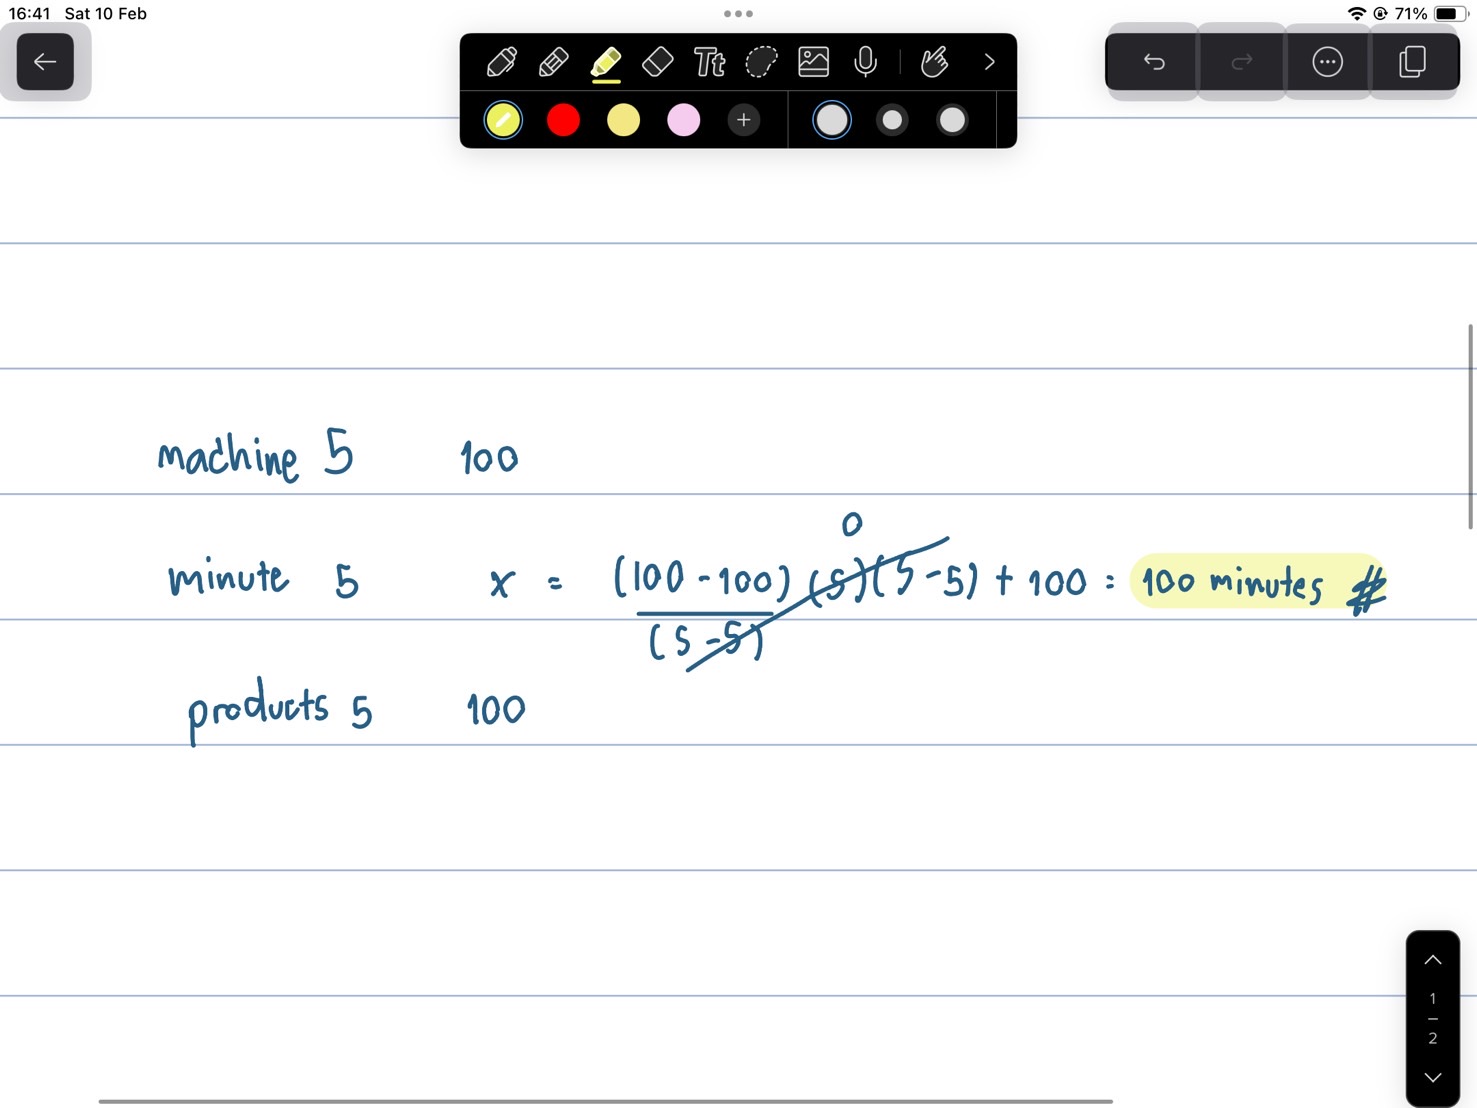 16:41 Sat 10 Feb 71%
Tt
machine 5 100
0
minute 5 x = (100 - 100) (5)(5 - 5) + 100 = 100 minutes #
(5 - 5)
products 5 100
1
2